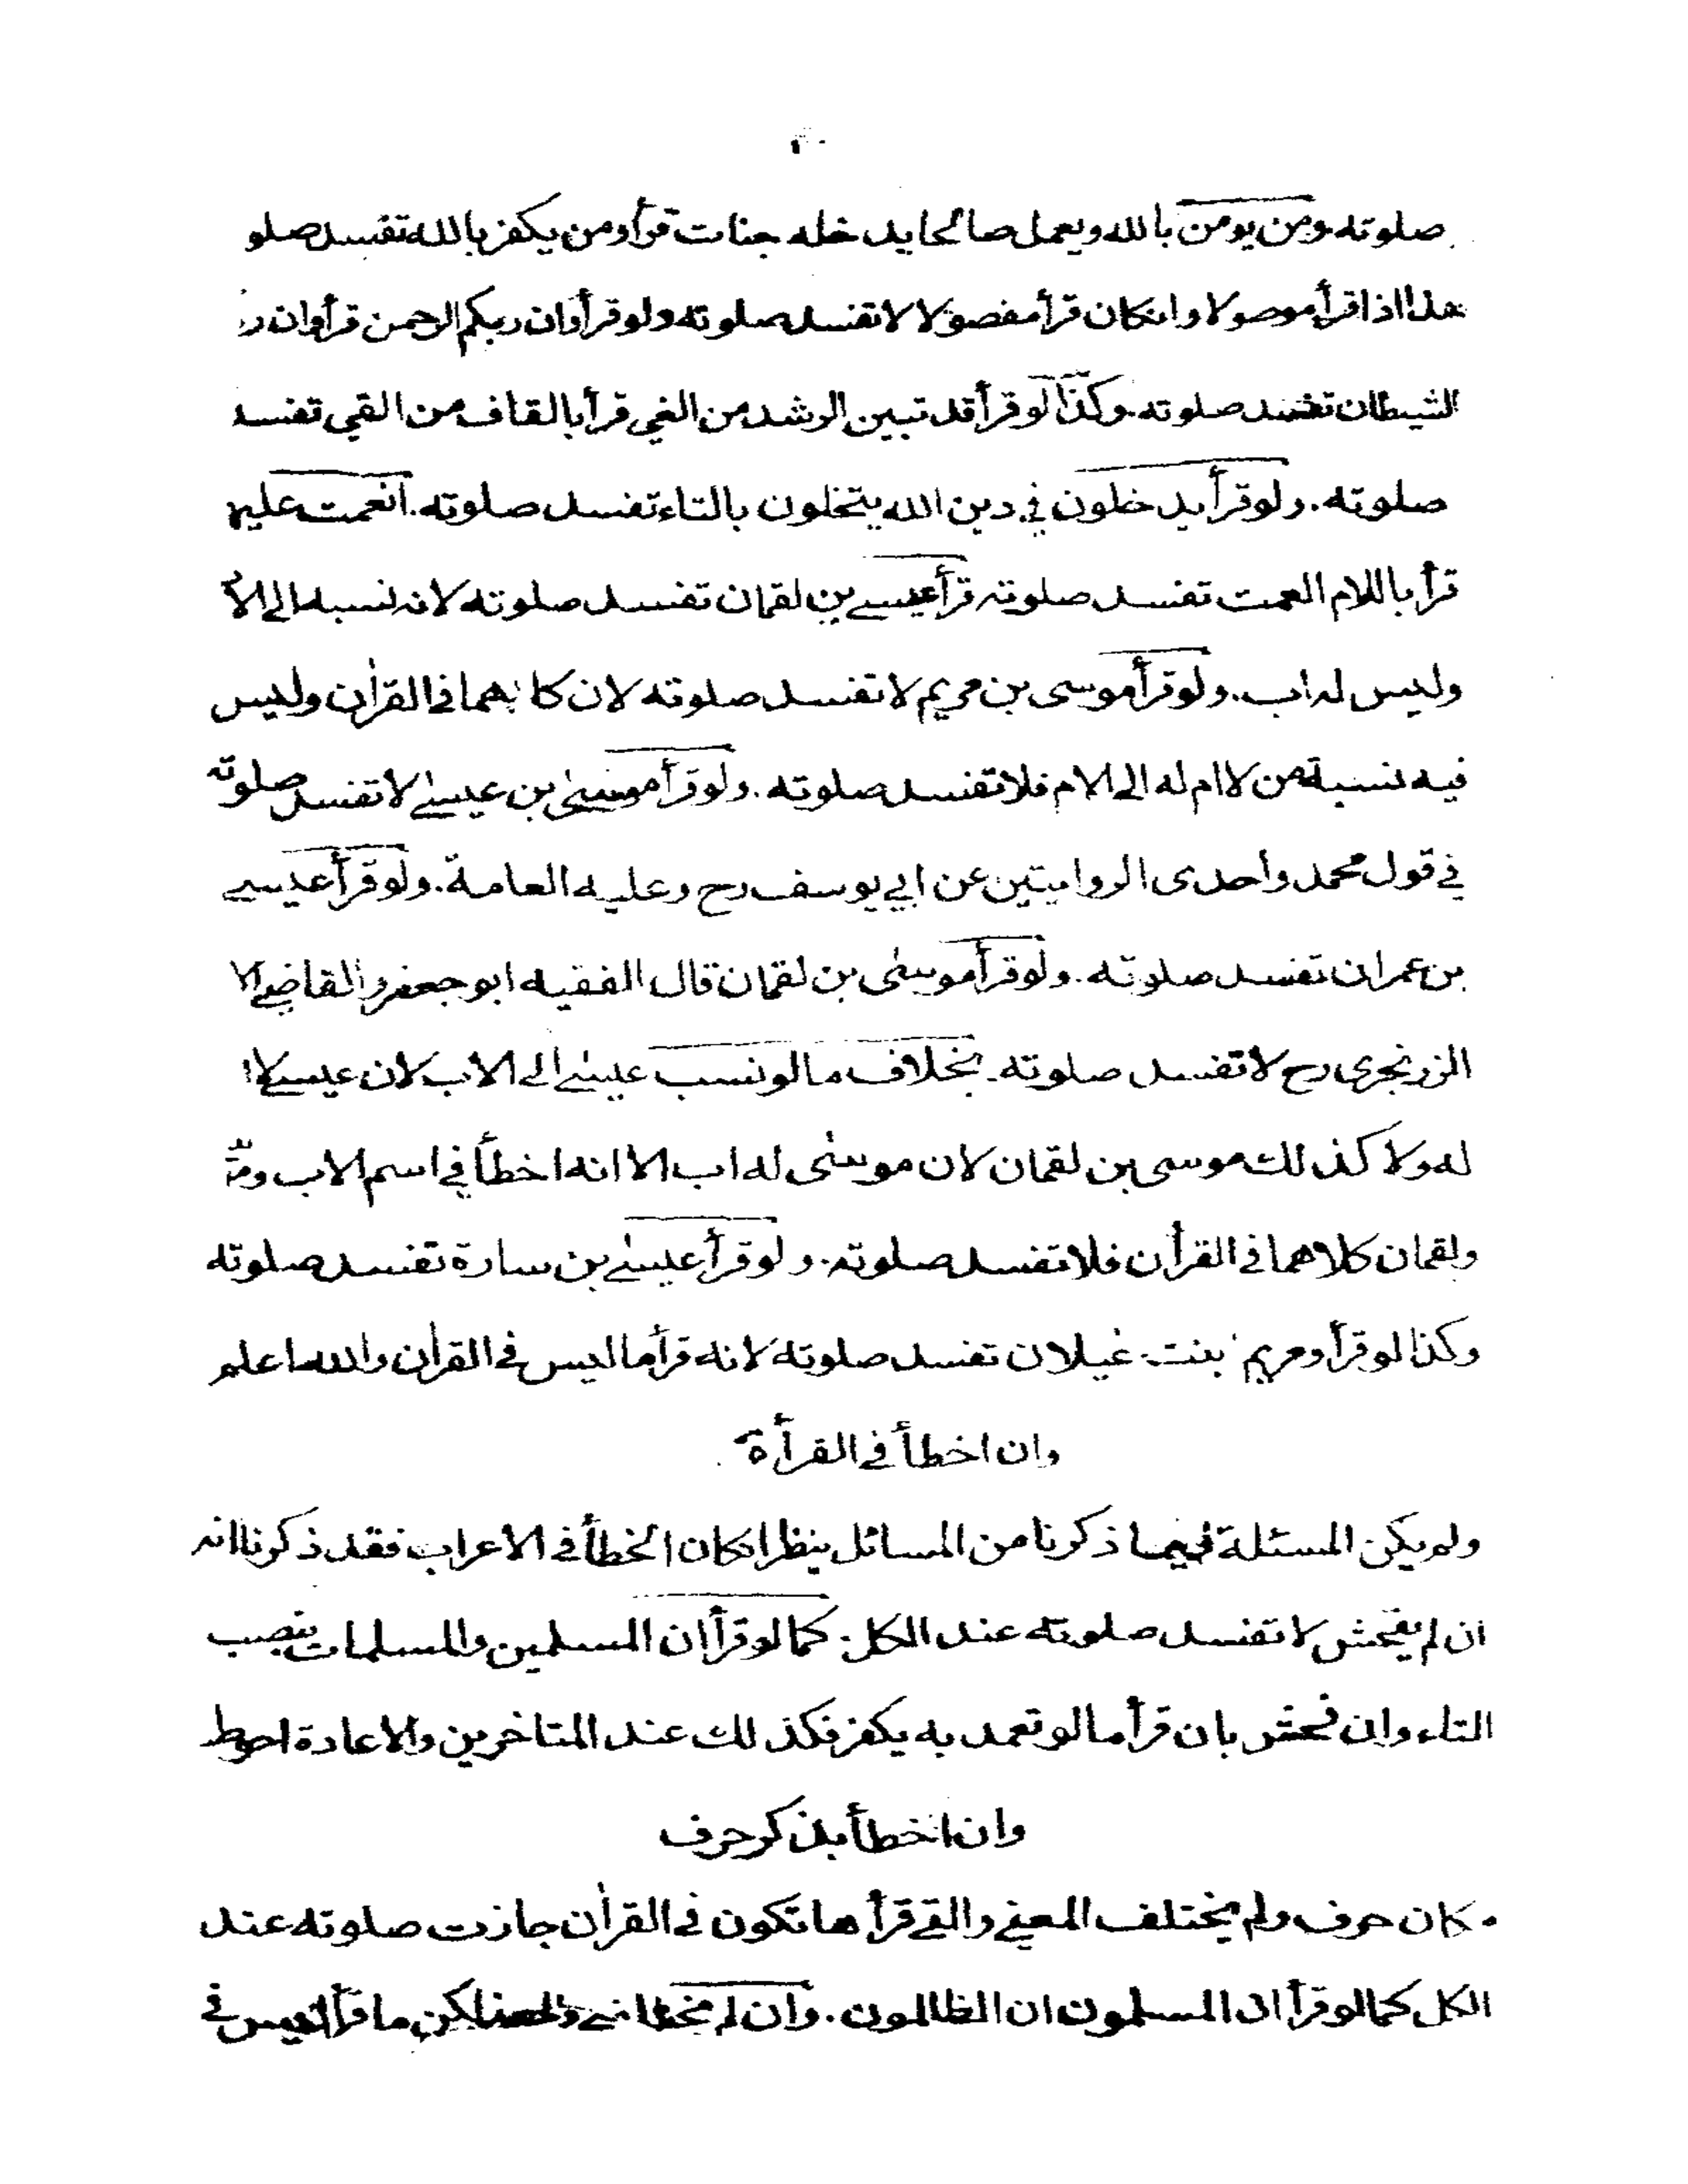 صلوته ومن يومن بالله ويعمل صالحا يدخله جنات قرأ ومن يكفر بالله تفسد صلو
هذا اذا قرأ موصولا وانكان قرأ مفصولا لا تفسد صلوته ولو قرأ وان ربكم الرحمن قرأ وان ر
الشيطان تفسد صلوته. وكذا لو قرأ قد تبين الرشد من الغي قرأ بالقاف من القي تفسد
صلوته. ولو قرأ يدخلون في دين الله يتخلون بالتاء تفسد صلوته. انعمت عليهم
قرأ باللام العمت تفسد صلوته قرأ عيسى بن لقمان تفسد صلوته لانه نسبه الى الاب
وليس له اب. ولو قرأ موسى بن مريم لا تفسد صلوته لان كلاهما في القرآن وليس
فيه نسبة من لا ام له الى الام فلا تفسد صلوته. ولو قرأ موسى بن عيسى لا تفسد صلوته
في قول محمد واحدى الروايتين عن ابي يوسف رح وعليه العامة. ولو قرأ عيسى
بن عمران تفسد صلوته. ولو قرأ موسى بن لقمان قال الفقيه ابو جعفر والقاضي الا
الزرنجرى رح لا تفسد صلوته. بخلاف ما لو نسب عيسى الى الاب لان عيسى لا ا
له ولا كذلك موسى بن لقمان لان موسى له اب الا انه اخطأ في اسم الاب
ولقمان كلاهما في القرأن فلا تفسد صلوته. ولو قرأ عيسى بن سارة تفسد صلوته
وكذا لو قرأ ومريم بنت غيلان تفسد صلوته لانه قرأ ما ليس في القرأن والله اعلم
وان اخطأ في القرأة
ولم يكن المسئلة فيما ذكرنا من المسائل ينظر انكان الخطأ في الاعراب فقد ذكرنا انه
ان لم يفحش لا تفسد صلوته عند الكل. كما لو قرأ ان المسلمين والمسلمات بنصب
التاء وان فحش بان قرأ ما لو تعمد به يكفر فكذلك عند المتاخرين والاعادة احوط
وان اخطأ بذكر حرف
مكان حرف ولم يختلف المعنى والتي قرأها تكون في القرأن جازت صلوته عند
الكل كما لو قرأ ان المسلمون ان الظالمون. وان لم لكن ما قرأ ليس في